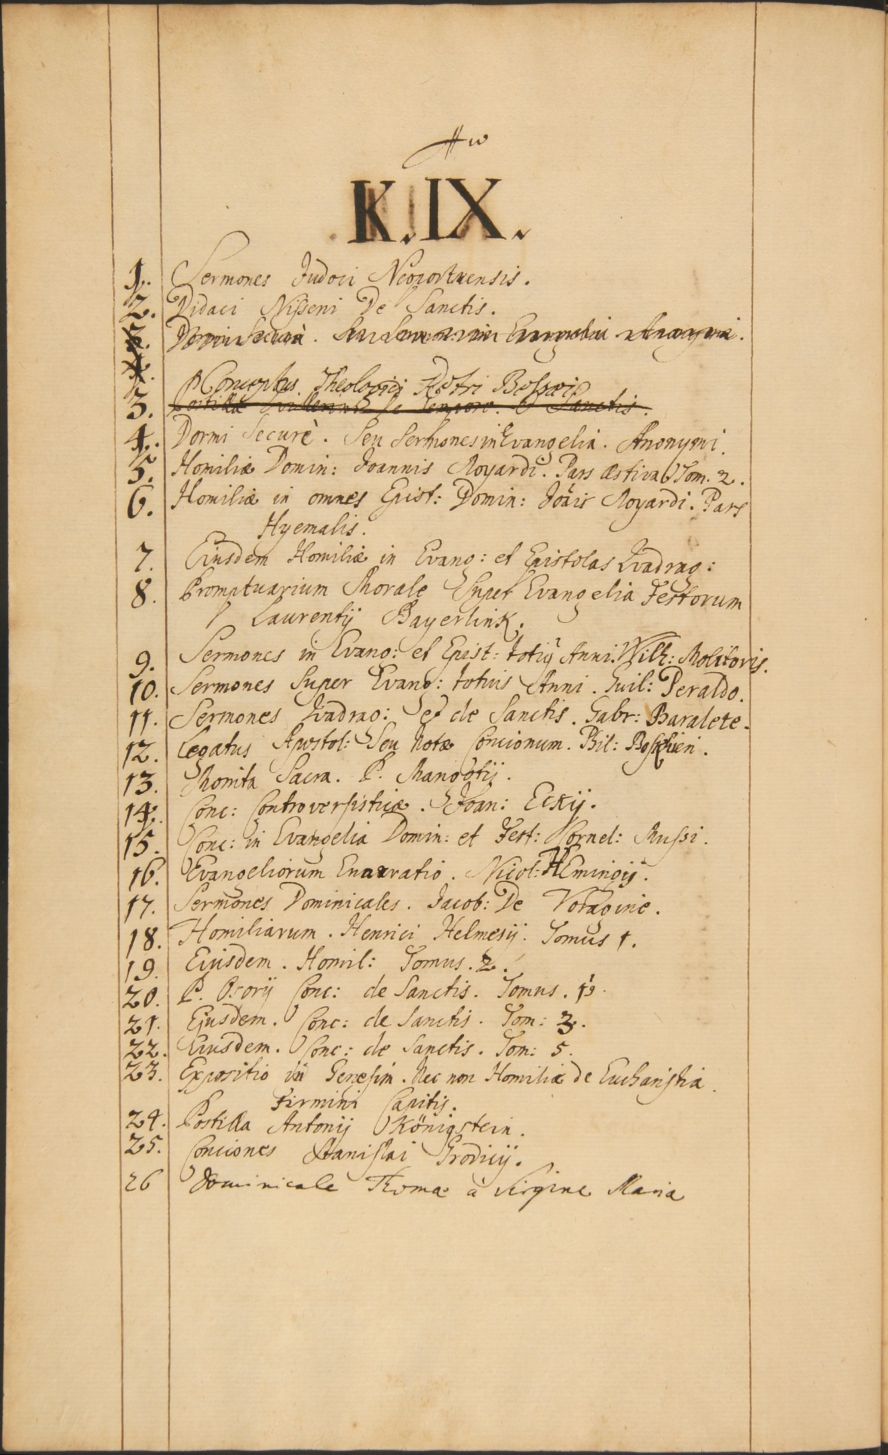 K.IX.
1. Sermones Judoci Neocortuensis.
2. Didaci Nisseni De Sanctis.
Dormi Secure. Seu Sermones in Evangelia Anonymi.
Conceptus Theologici Petri Bessæi
3. Postilla Guillermi de Tempore & Sanctis.
4. Dormi Securè. Seu Sermones in Evangelia. Anonymi.
5. Homiliæ Domin: Joannis Royardi. Pars æstiva Tom. 2.
6. Homiliæ in omnes Epist: Domin: Joāis Royardi. Pars
Hyemalis.
7. Eiusdem Homiliæ in Evang: et Epistolas Quadrag:
8. Promptuarium Morale Super Evangelia Festorum
Laurentij Bayerlink.
9. Sermones in Evang: et Epist: totiꝰ Anni. Wilh: Molitoris.
10. Sermones Super Evang: totius Anni. Guil: Peraldo.
11. Sermones Quadrag: et de Sanctis. Gabr: Baralete.
12. Legatus Apostol: Seu Notæ Concionum. Bil:
13. Monita Sacra. P. Mangotij.
14. Conc: Controversisticæ. Joan: Eckij.
15. Conc: in Evangelia Domin: et Fest: Cornel: Mussi.
16. Evangeliorum Enarratio. Nicol: Hemingij.
17. Sermones Dominicales. Jacob: De Voragine.
18. Homiliarum. Henrici Helmesij. Tomus 1.
19. Eiusdem. Homil: Tomus. 2.
20. P. Osorij Conc: de Sanctis. Tomus. 1ꝰ.
21. Ejusdem. Conc: de Sanctis. Tom: 3.
22. Eiusdem. Conc: de Sanctis. Tom: 5.
23. Expositio in Genesim. Nec non Homiliæ de Eucharistia.
Firmini Capitis.
24. Postilla Antonij Königstein.
25. Conciones Stanislai Grodicij.
26 Dominicale Thomæ à Virgine Maria